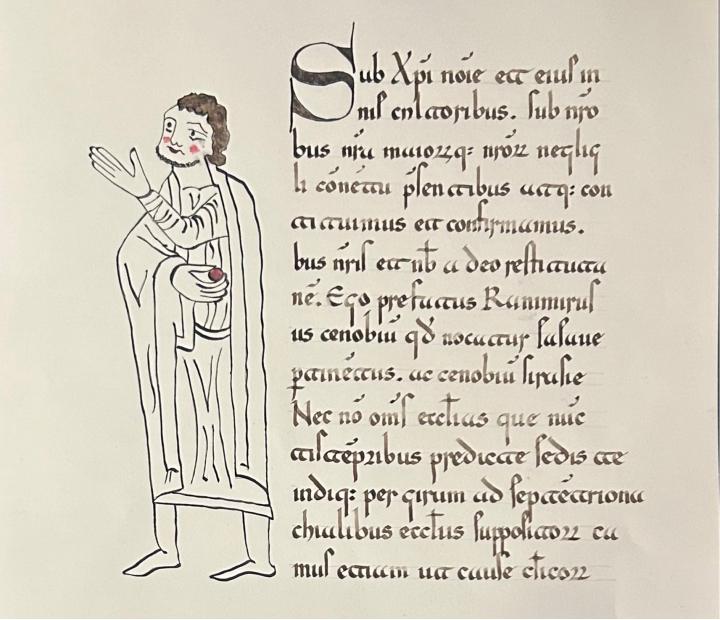 Sub Xp̄i nōīe ett eius in
nis cultoribus. sub nr̄o
bus nr̄a maiorꝝq: nr̄oꝝ neglig
li cōnettu p̄senttibus attq: con
sttittuimus ett confirmamus.
bus nr̄is ett nb̄ a deo resttittutta
nē. Ego prefattus Ranimirus
us cenobiū qd̄ uocattur sasaue
ꝑttinēttus. ac cenobiū sirasie
Nec nō om̄s ecclias que nūc
predictte sedis atte
indiq: per girum ad septtēttriona
chialibus ecctis suppositoꝝ ca
mus ettiam utt cause cticoꝝ